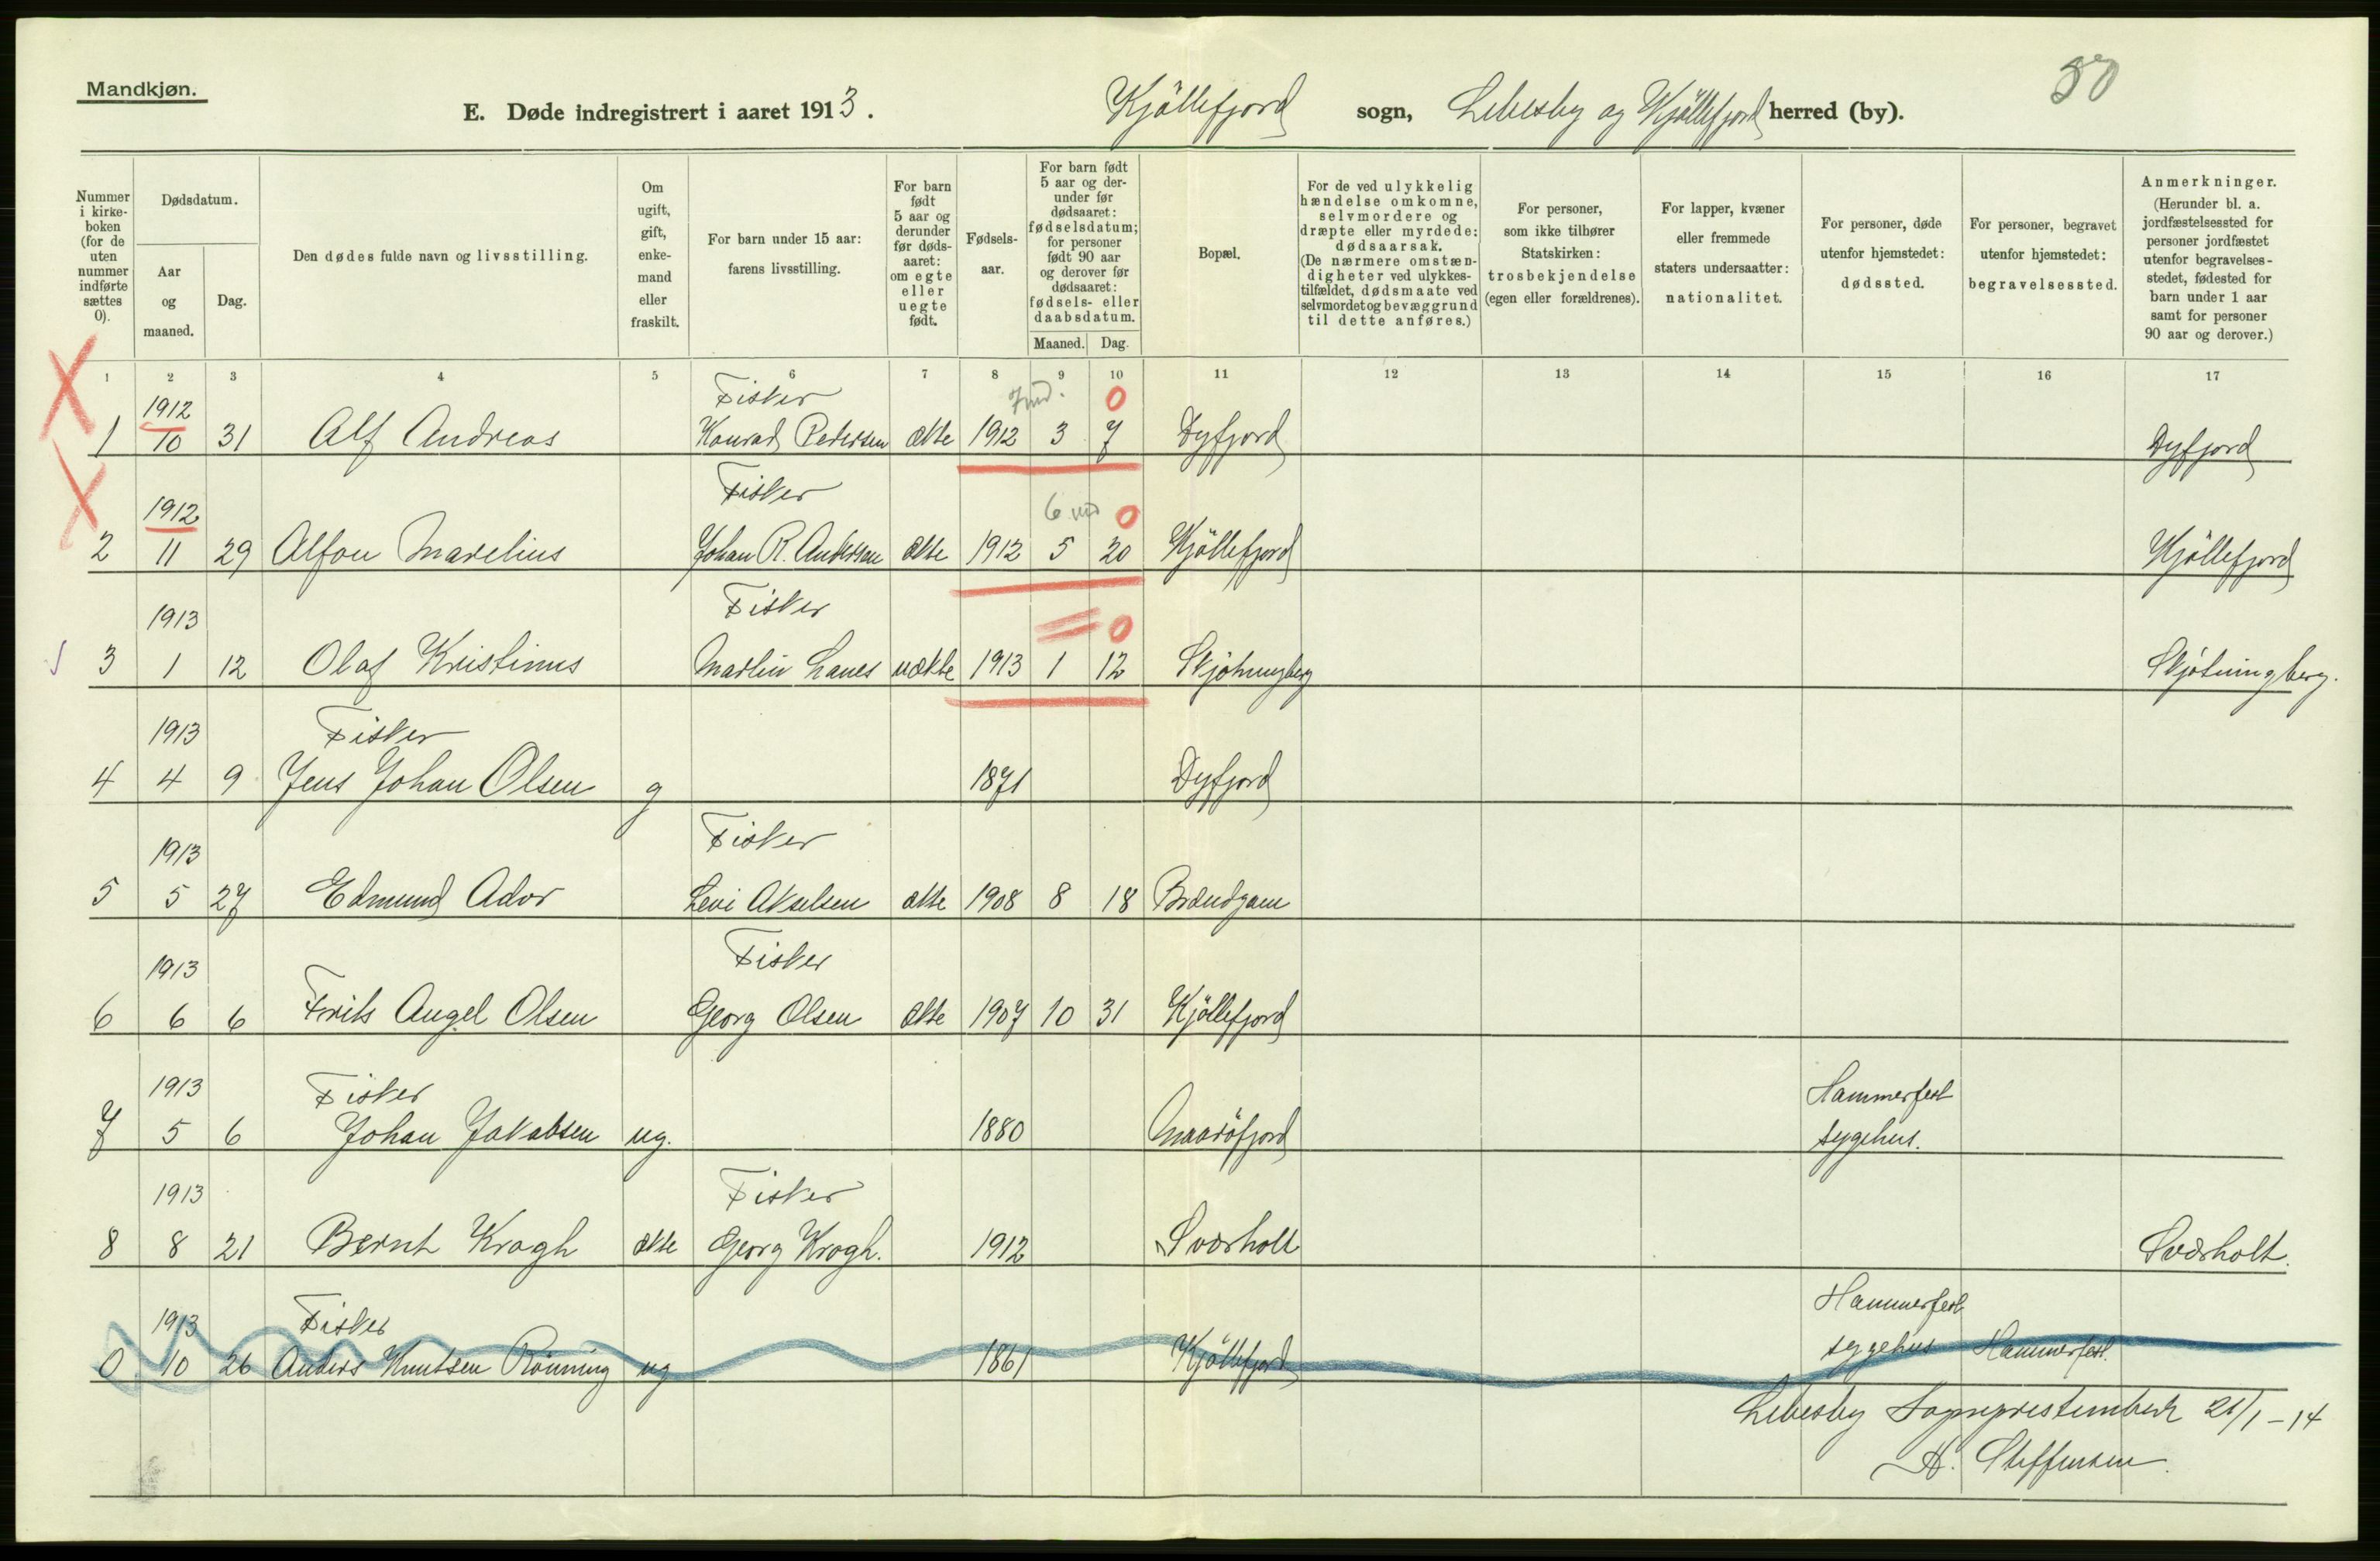 Mandkjøn.
50
E. Døde indregistrert i aaret 1913. Kjöllefjord sogn, Lebesby og Kjöllefjord herred (by).
Nummer i kirke-boken (for de uten nummer indførte sættes 0).
Dødsdatum.
Aar og maaned.
Dag.
Den dødes fulde navn og livsstilling.
Om ugift, gift, enke-mand eller fraskilt.
For barn under 15 aar: farens livsstilling.
For barn født 5 aar og derunder før døds-aaret: om egte eller uegte født.
Fødsels-aar.
For barn født 5 aar og der-under før dødsaaret: fødselsdatum; for personer født 90 aar og derover før dødsaaret: fødsels- eller daabsdatum.
Maaned. Dag.
Bopæl.
For de ved ulykkelig hændelse omkomne, selvmordere og dræpte eller myrdede: dødsaarsak. (De nærmere omstæn-digheter ved ulykkes-tilfældet, dødsmaate ved selvmordet og bevæggrund til dette anføres.)
For personer, som ikke tilhører Statskirken: trosbekjendelse (egen eller forældrenes).
For lapper, kvæner eller fremmede staters undersaatter: nationalitet.
For personer, døde utenfor hjemstedet: dødssted.
For personer, begravet utenfor hjemstedet: begravelsessted.
Anmerkninger. (Herunder bl. a. jordfæstelsessted for personer jordfæstet utenfor begravelses-stedet, fødested for barn under 1 aar samt for personer 90 aar og derover.)
1 2 3 4 5 6 7 8 9 10 11 12 13 14 15 16 17
1912 Fisker 7 md. 0
1 10 31 Alf Andreas Konrad Pedersen ekte 1912 3 7 Dyfjord Dyfjord
1912 Fisker 6 md 0
2 11 29 Alfon Marelius Johan R. Andersen ekte 1912 5 20 Kjöllefjord Kjöllefjord
1913 Fisker 0
3 1 12 Olaf Kristinus Martin Lanes uekte 1913 1 12 Skjötningberg Skjötningberg.
1913 Fisker
4 4 9 Jens Johan Olsen g 1871 Dyfjord
1913 Fisker
5 5 27 Edmund Ador Levi Akselsen ekte 1908 8 18 Brendgam
1913 Fisker
6 6 6 Frits Angel Olsen Georg Olsen ekte 1907 10 31 Kjöllefjord
1913 Fisker Hammerfest
7 5 6 Johan Jakobsen ug. 1880 sygehus.
1913 Fisker
8 8 21 Bernt Krogh ekte Georg Krogh. 1912 Sværholt Sværholt.
1913 Fisker Hammerfest
0 10 26 Anders Knutsen Rönning ug 1861 Kjöllefjord sygehus Hammerfest.
Lebesby Sogneprestembede 21/1-14
A. Steffensen.